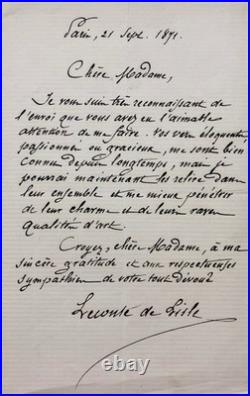 Paris, 21 Sept. 1891.
Chère Madame,
Je vous suis très reconnaissant de
l'envoi que vous avez eu l'aimable
attention de me faire. Vos vers éloquents,
passionnés ou gracieux, me sont bien
connus depuis longtemps, mais je
pourrai maintenant les relire dans
leur ensemble et me mieux pénétrer
de leur charme et de leurs rares
qualités d'art.
Croyez, chère Madame, à ma
sincère gratitude et aux respectueuses
sympathies de votre tout dévoué
Leconte de Lisle